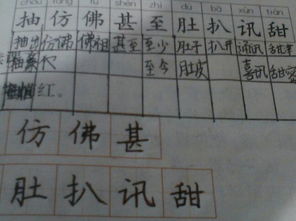 chōu fǎng fú shèn zhì dù bā xùn tián
抽 仿 佛 甚 至 肚 扒 讯 甜
抽出 仿佛 佛祖 甚至 至少 肚子 扒开 通讯
至今 肚皮 喜讯 甜蜜
红。
仿 佛 甚
肚 扒 讯 甜